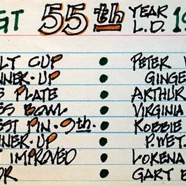 GT 55th YEAR
L.D. 19
LT CUP • PETER
NNER-UP • GINGE
S PLATE • ARTHUR
ES BOWL • VIRGINIA
EST PIN. 9th. • ROBBIE
NNER-UP • P. WET.
IMPROVED • LORENA
OR • GART